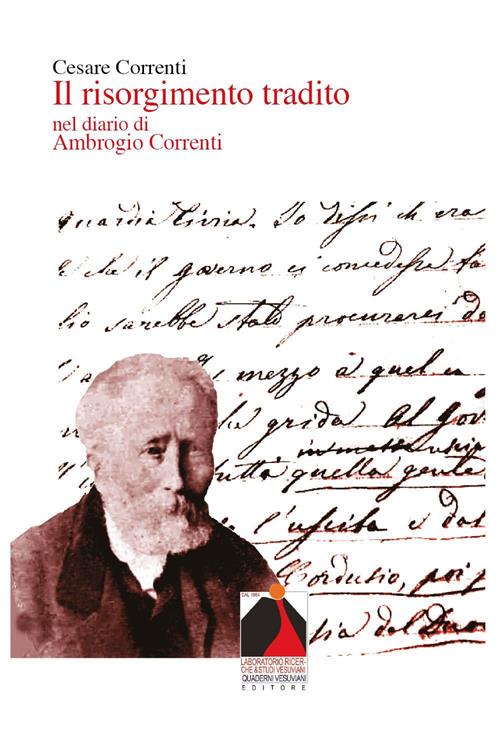 Cesare Correnti
Il risorgimento tradito
nel diario di
Ambrogio Correnti
Guardia Civica. Io dissi ch era
che il governo ci concedesse fa
lio sarebbe stato procurarci do
mezzo a quel
grida al Gov
tutta quella gente
l'uscita e dal
Cordusio, poi p
del Duo
DAL 1984
LABORATORIO RICER-
CHE & STUDI VESUVIANI
QUADERNI VESUVIANI
EDITORE